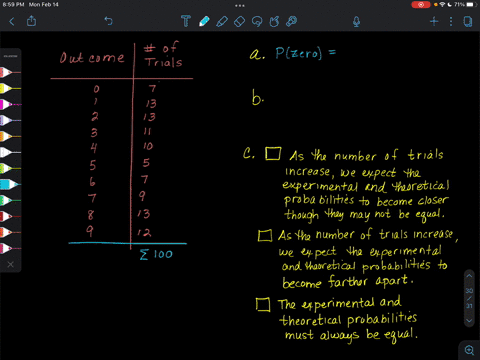 8:59 PM Mon Feb 14
71%
Outcome # of Trials
0 7
1 13
2 13
3 11
4 10
5 5
6 7
7 9
8 13
9 12
Σ 100
a. P(zero) =
b.
c. As the number of trials
increase, we expect the
experimental and theoretical
probabilities to become closer
though they may not be equal.
As the number of trials increase,
we expect the experimental
and theoretical probabilities to
become farther apart.
The experimental and
theoretical probabilities
must always be equal.
30
/
31